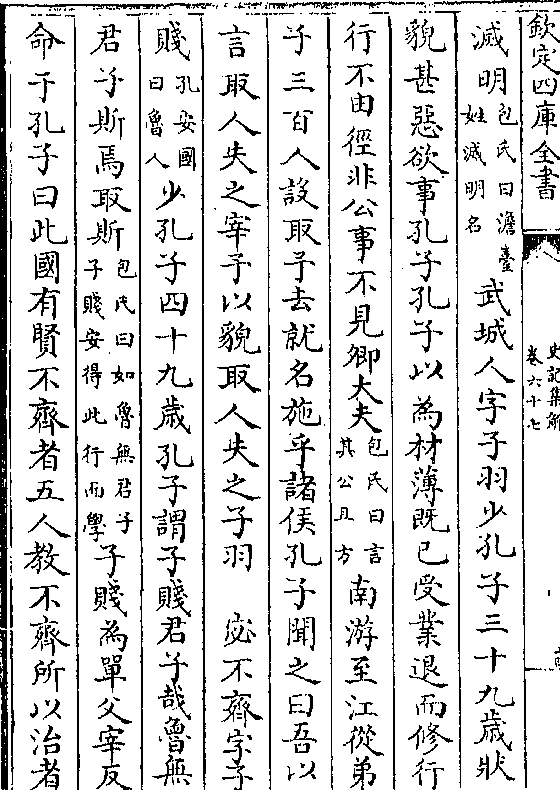 欽定四庫全書
史記集解
卷六十七
滅明包氏曰澹臺姓滅明名武城人字子羽少孔子三十九歲狀
貌甚惡欲事孔子孔子以為材薄既已受業退而修行
行不由徑非公事不見卿大夫包氏曰言其公且方南游至江從弟
子三百人設取予去就名施乎諸侯孔子聞之曰吾以
言取人失之宰予以貌取人失之子羽 宓不齊字子
賤孔安國曰魯人少孔子四十九歲孔子謂子賤君子哉魯無
君子斯焉取斯包氏曰如魯無君子子賤安得此行而學子賤為單父宰反
命于孔子曰此國有賢不齊者五人教不齊所以治者